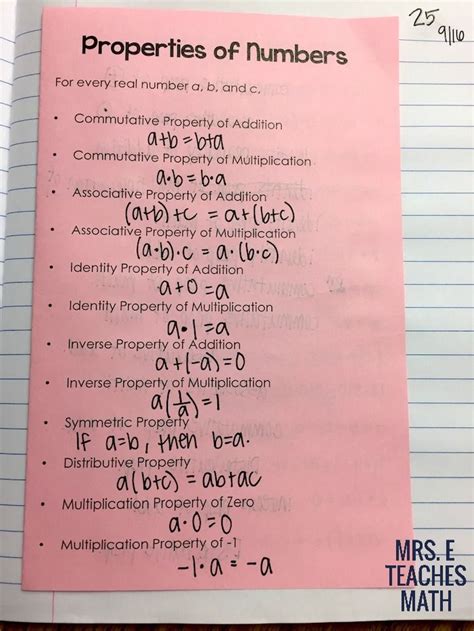 25
9/16
Properties of Numbers
For every real number a, b, and c,
• Commutative Property of Addition
a+b=b+a
• Commutative Property of Multiplication
a•b=b•a
• Associative Property of Addition
(a+b)+c = a+(b+c)
• Associative Property of Multiplication
(a•b)•c = a•(b•c)
• Identity Property of Addition
a+0=a
• Identity Property of Multiplication
a•1=a
• Inverse Property of Addition
a+(-a)=0
• Inverse Property of Multiplication
a(1/a)=1
• Symmetric Property
If a=b, then b=a.
• Distributive Property
a(b+c)=ab+ac
• Multiplication Property of Zero
a•0=0
• Multiplication Property of -1
-1•a = -a
MRS. E
TEACHES
MATH